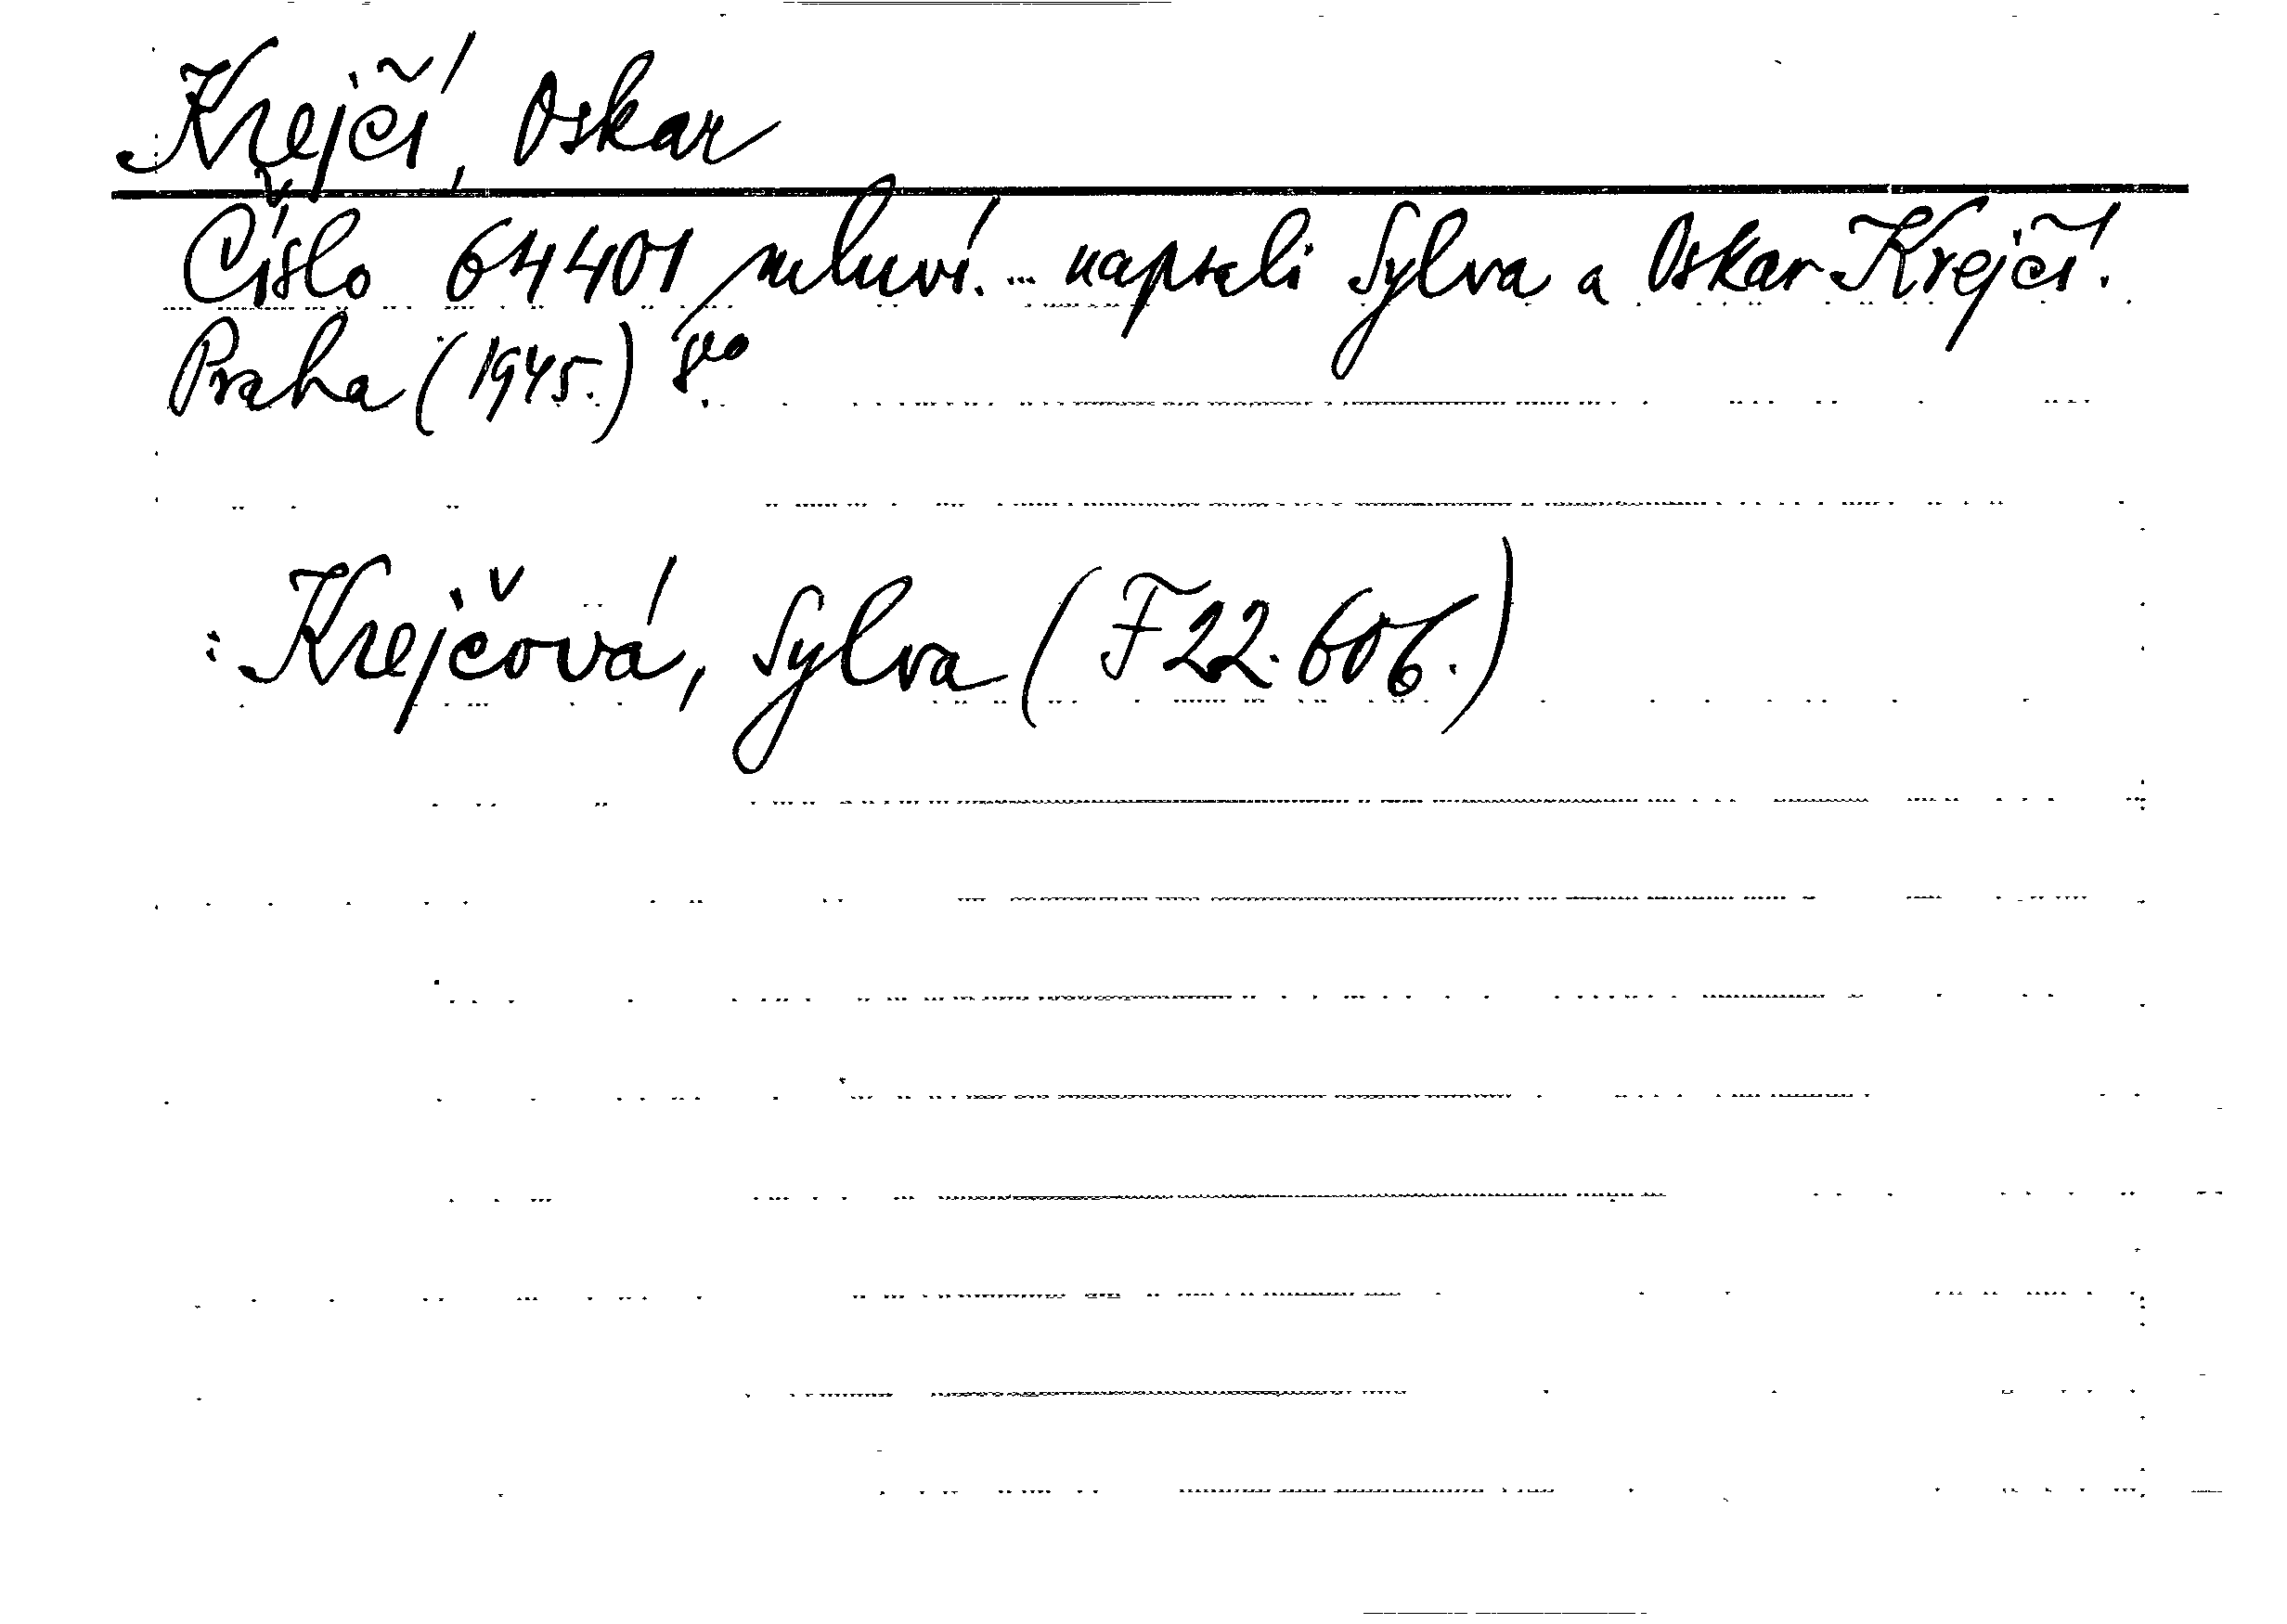 Krejčí, Oskar
Číslo 64401 mluví. ... napsali Sylva a Oskar Krejčí.
Praha (1945.) 8vo
: Krejčová, Sylva (F 22.606.)